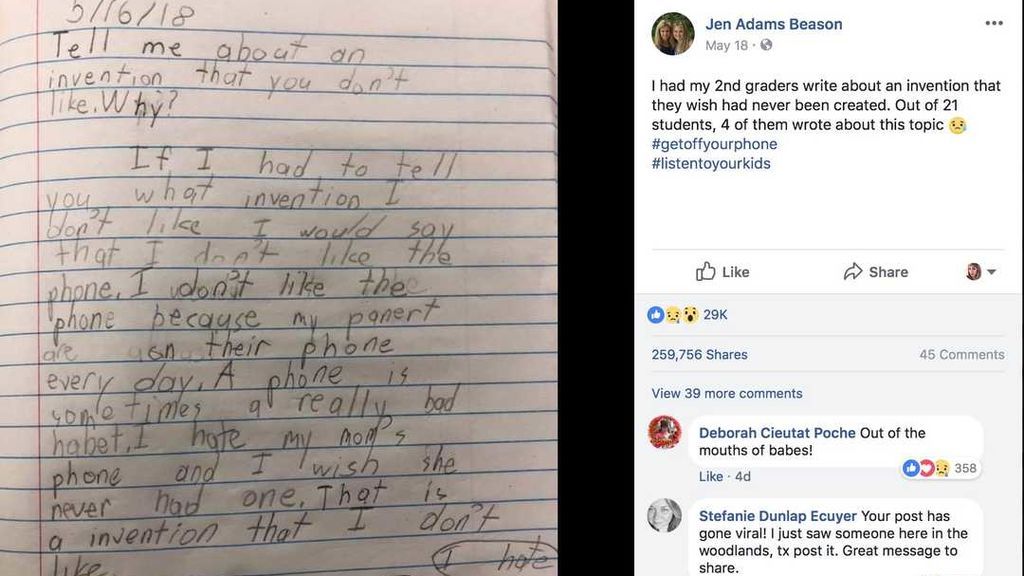 5/16/18
Tell me about an
invention that you don't
like. Why?
If I had to tell
you what invention I
don't like I would say
that I don't like the
phone. I don't like the
phone because my panert
are on their phone
every day. A phone is
sometimes a really bad
habet. I hate my mom's
phone and I wish she
never had one. That is
a invention that I don't
like.
I hate
Jen Adams Beason
May 18
I had my 2nd graders write about an invention that
they wish had never been created. Out of 21
students, 4 of them wrote about this topic
#getoffyourphone
#listentoyourkids
Like Share
29K
259,756 Shares 45 Comments
View 39 more comments
Deborah Cieutat Poche Out of the
mouths of babes!
358
Like · 4d
Stefanie Dunlap Ecuyer Your post has
gone viral! I just saw someone here in the
woodlands, tx post it. Great message to
share.